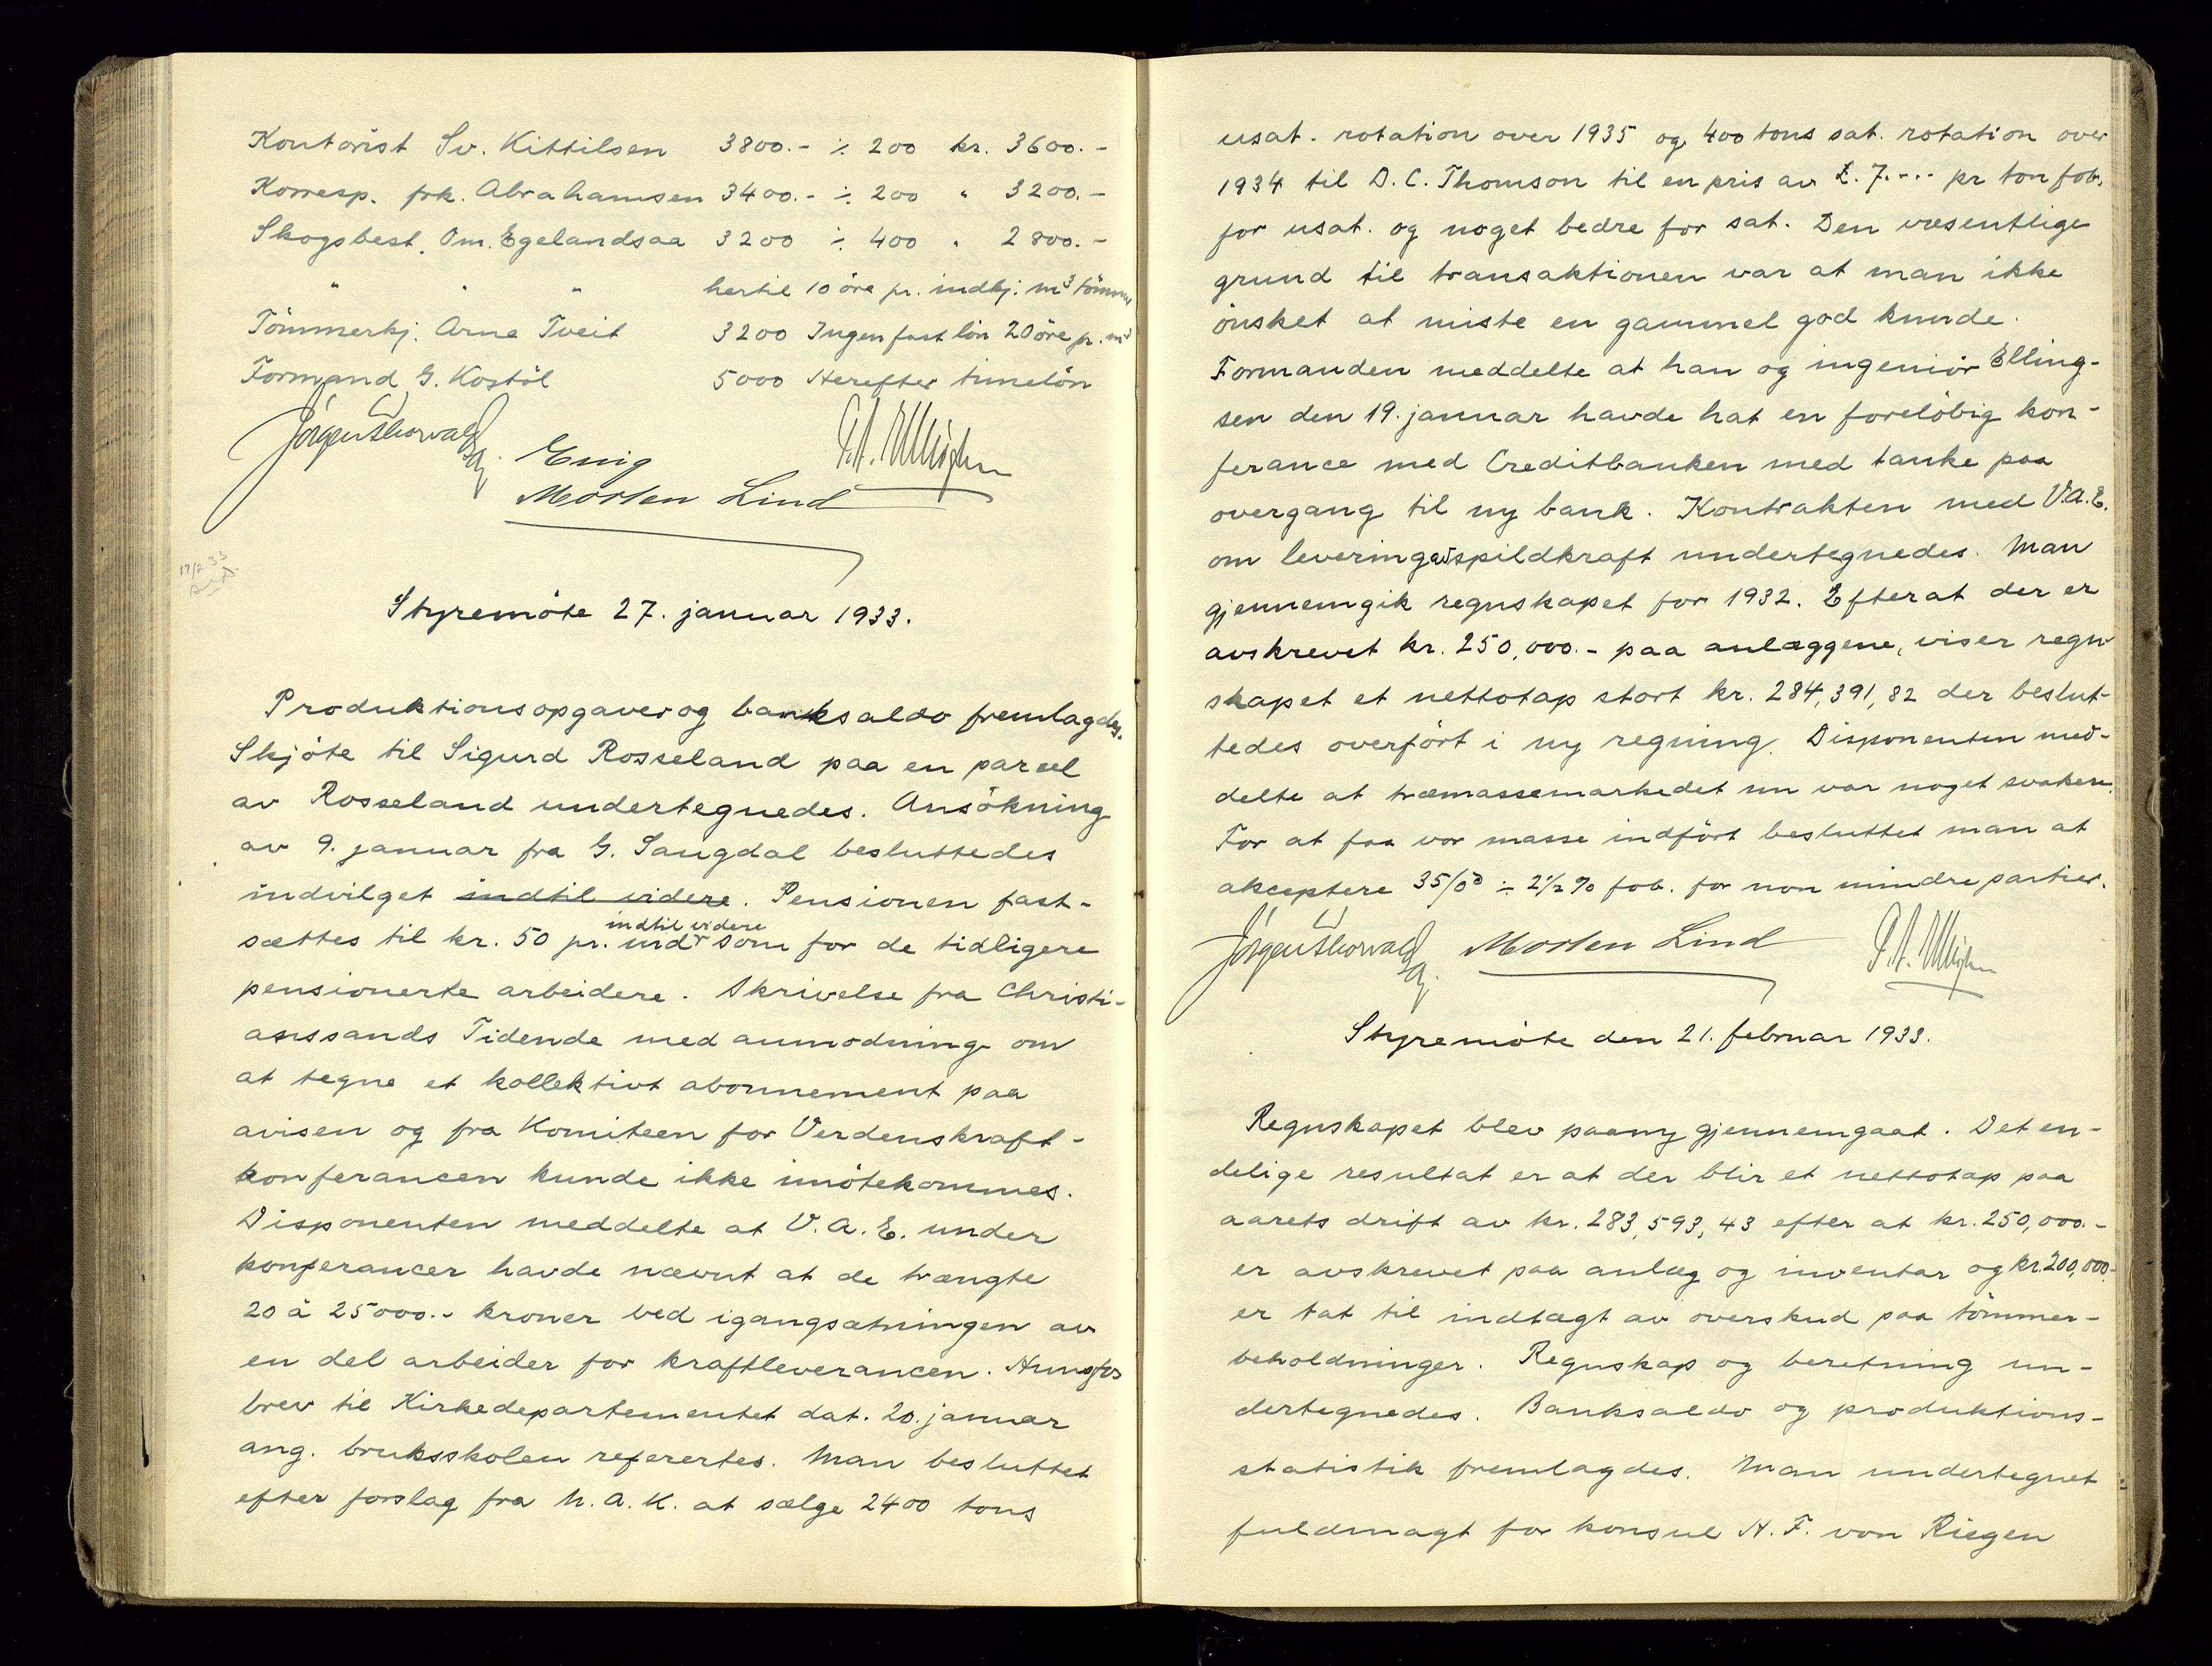 Kontorist Sv. Kittilsen 3800.- ÷ 200 kr. 3600.-
Korresp. frk. Abrahamsen 3400.- ÷ 200 " 3200.-
Skogsbest. Om. Egelandsaa 3200 ÷ 400 " 2800.-
" " " hertil 10 öre pr. indkj. m³ tömmer
Tömmerkj. Arne Tveit 3200 Ingen fast lön 20 öre pr. m³
Formand G. Kostöl 5000 Herefter timelön
Emig
Morten Lind
17/2 33
Styremöte 27. januar 1933.
Produktionsopgaver og banksaldo fremlagdes.
Skjöte til Sigurd Rosseland paa en parcel
av Rosseland undertegnedes. Ansökning
av 9. januar fra G. Saugdal besluttedes
indvilget indtil videre. Pensionen fast-
indtil videre
sættes til kr. 50 pr. md som for de tidligere
pensionerte arbeidere. Skrivelse fra Christi-
anssands Tidende med anmodning om
at tegne et kollektivt abonnement paa
avisen og fra Komiteen for Verdenskraft-
konferancen kunde ikke imötekommes.
Disponenten meddelte at V.A.E. under
konferancer havde nævnt at de trængte
20 à 25000.- kroner ved igangsætningen av
en del arbeider for kraftleverancen. Hunsfos
brev til Kirkedepartementet dat. 20. januar
ang. bruksskolen referertes. Man besluttet
efter forslag fra M.A.K. at sælge 2400 tons
usat. rotation over 1935 og 400 tons sat. rotation over
1934 til D.C. Thomson til en pris av £. 7.-.- pr ton fob.
for usat. og noget bedre for sat. Den væsentlige
grund til transaktionen var at man ikke
önsket at miste en gammel god kunde.
Formanden meddelte at han og ingeniör Elling-
sen den 19. januar havde hat en forelöbig kon-
ferance med Creditbanken med tanke paa
overgang til ny bank. Kontrakten med V.A.E.
om levering av spildkraft undertegnedes. Man
gjennemgik regnskapet for 1932. Efterat der er
avskrevet kr. 250,000.- paa anlæggene, viser regn-
skapet et nettotap stort kr. 284,391,82 der beslut-
tedes overfört i ny regning. Disponenten med-
delte at træmassemarkedet nu var noget svakere.
For at faa vor masse indfört besluttet man at
akceptere 35/0ᵈ ÷ 2½% fob. for non mindre partier.
Morten Lind
Styremöte den 21. februar 1933.
Regnskapet blev paany gjennemgaat. Det en-
delige resultat er at der blir et nettotap paa
aarets drift av kr. 283,593,43 efter at kr. 250,000.-
er avskrevet paa anlæg og inventar og kr. 200,000.-
er tat til indtægt av overskud paa tömmer-
beholdninger. Regnskap og beretning un-
dertegnedes. Banksaldo og produktions-
statistik fremlagdes. Man undertegnet
fuldmagt for konsul H.F. von Riegen